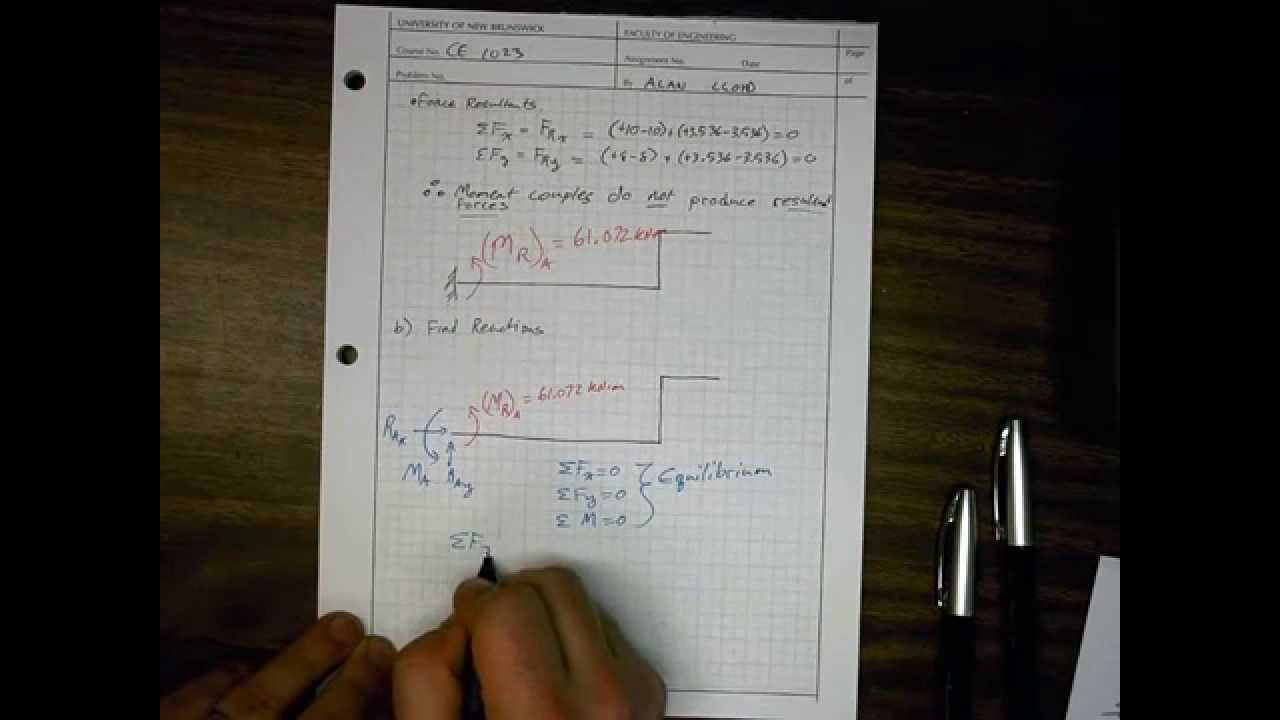 UNIVERSITY OF NEW BRUNSWICK
FACULTY OF ENGINEERING
Page
Course No. CE 1023
Assignment No.
Date
of
Problem No.
By ALAN LLOYD
• Force Resultants
ΣFx = FRx = (+10-10)+(+3.536-3.536)=0
ΣFy = FRy = (+8-8)+(+3.536-3.536)=0
∴ Moment couples do not produce resultant
forces
(MR)A = 61.072 kNm
b) Find Reactions
(MR)A = 61.072 kN·m
RAx
MA RAy
ΣFx=0
ΣFy=0
Σ M=0
Equilibrium
ΣF